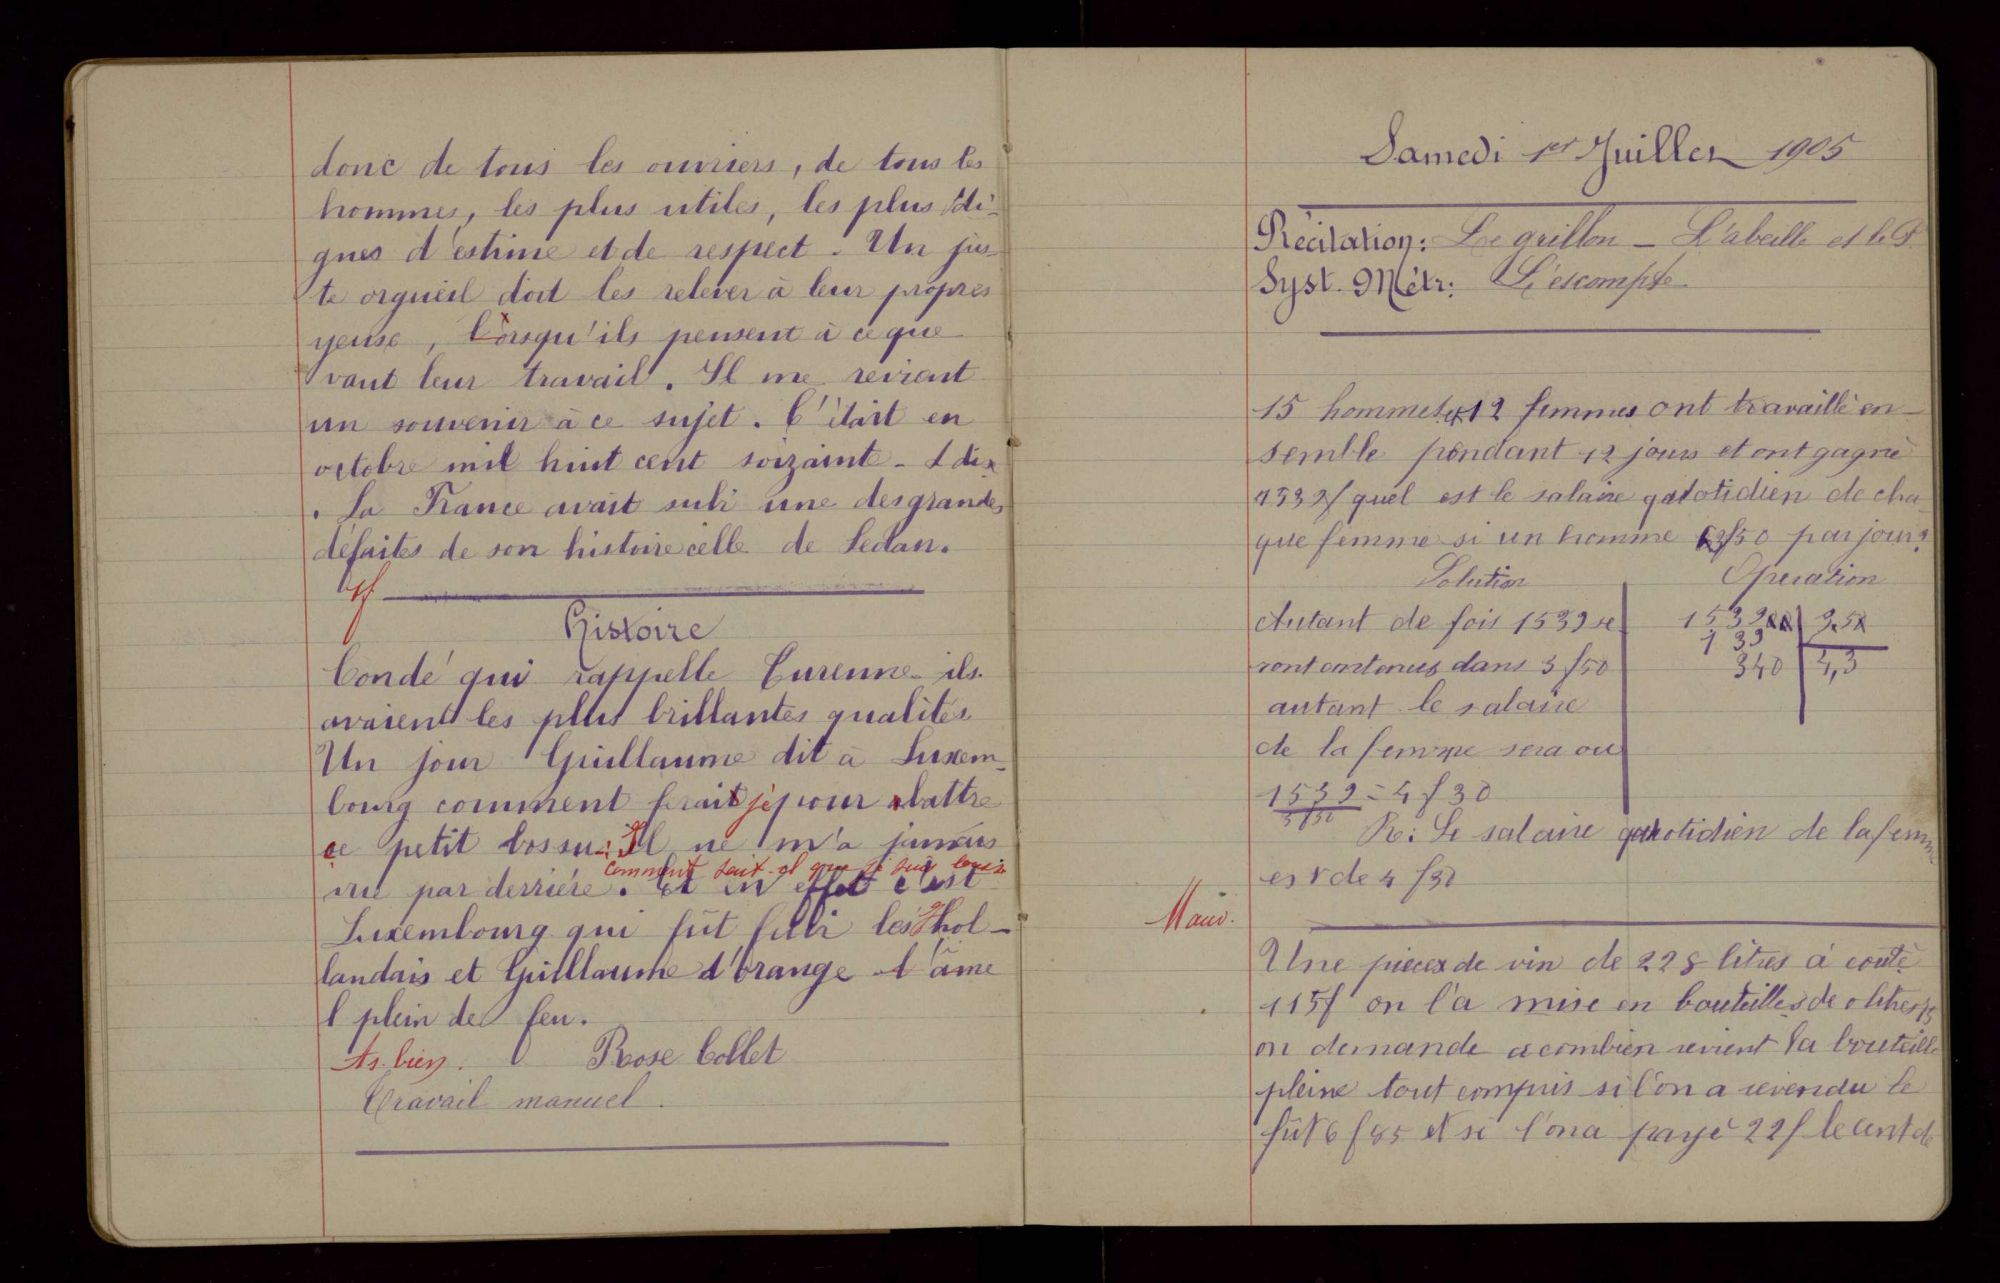 donc de tous les ouvriers, de tous les
hommes, les plus utiles, les plus di-
gnes d'estime et de respect. Un jus-
te orgueil doit les relever à leur propres
yeuse, lorsqu'ils pensent à ce que
vaut leur travail. Il me revient
un souvenir à ce sujet. C'était en
octobre mil huit cent soizaint-dix
. La France avait subi une des grandes
défaites de son histoire celle de Sedan.
Histoire
Condé qui rappelle Turenne ils
avaient les plus brillantes qualités
Un jour Guillaume dit à Luxem-
bourg comment ferait jepour abattre
ce petit bossu. Il ne m'a jamais
comment sait-il que je suis bossu
vu par derriére. Et en effet c'est
Luxembourg qui fût les hol-
landais et Guillaume d'orange l'âme
plein de feu.
Ts. bien. Rose Collet
Travail manuel.
Samedi 1er Juillet 1905
Récitation: Le grillon - L'abeille et le P.
Syst. Métr: L'escompte
15 hommes et 12 femmes ont travaillé en-
semble pendant 12 jours et ont gagné
1532f quel est le salaire quotidien de cha-
que femme si un homme 3f50 par jour?
Solution Operation
Autant de fois 1532 se 1532 3.5
ront contenues dans 3f50 132
340 4,3
autant le salaire
de la femme sera ou
1532 = 4f30
3f50
R: Le salaire quotidien de la femme
est de 4f30
Mauv.
Une pieces de vin de 228 litres à coûté
115f on l'a mise en bouteilles de 0 litres 75
on demande a combien revient la bouteille
pleine tout compris si l'on a revendu le
fût 6f85 et si l'on a payé 22f le cent de